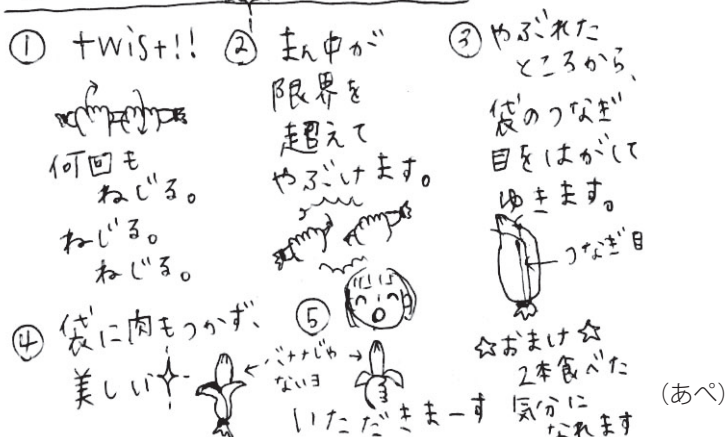 ① twist!!
何回も
ねじる。
ねじる。
ねじる。
② まん中が
限界を
超えて
やぶけます。
③ やぶれた
ところから、
袋のつなぎ
目をはがして
ゆきます。
つなぎ目
④ 袋に肉もつかず、
美しい
バナナじゃ
ないヨ
⑤
いただきまーす
☆おまけ☆
2本食べた
気分に
なれます
(あぺ)